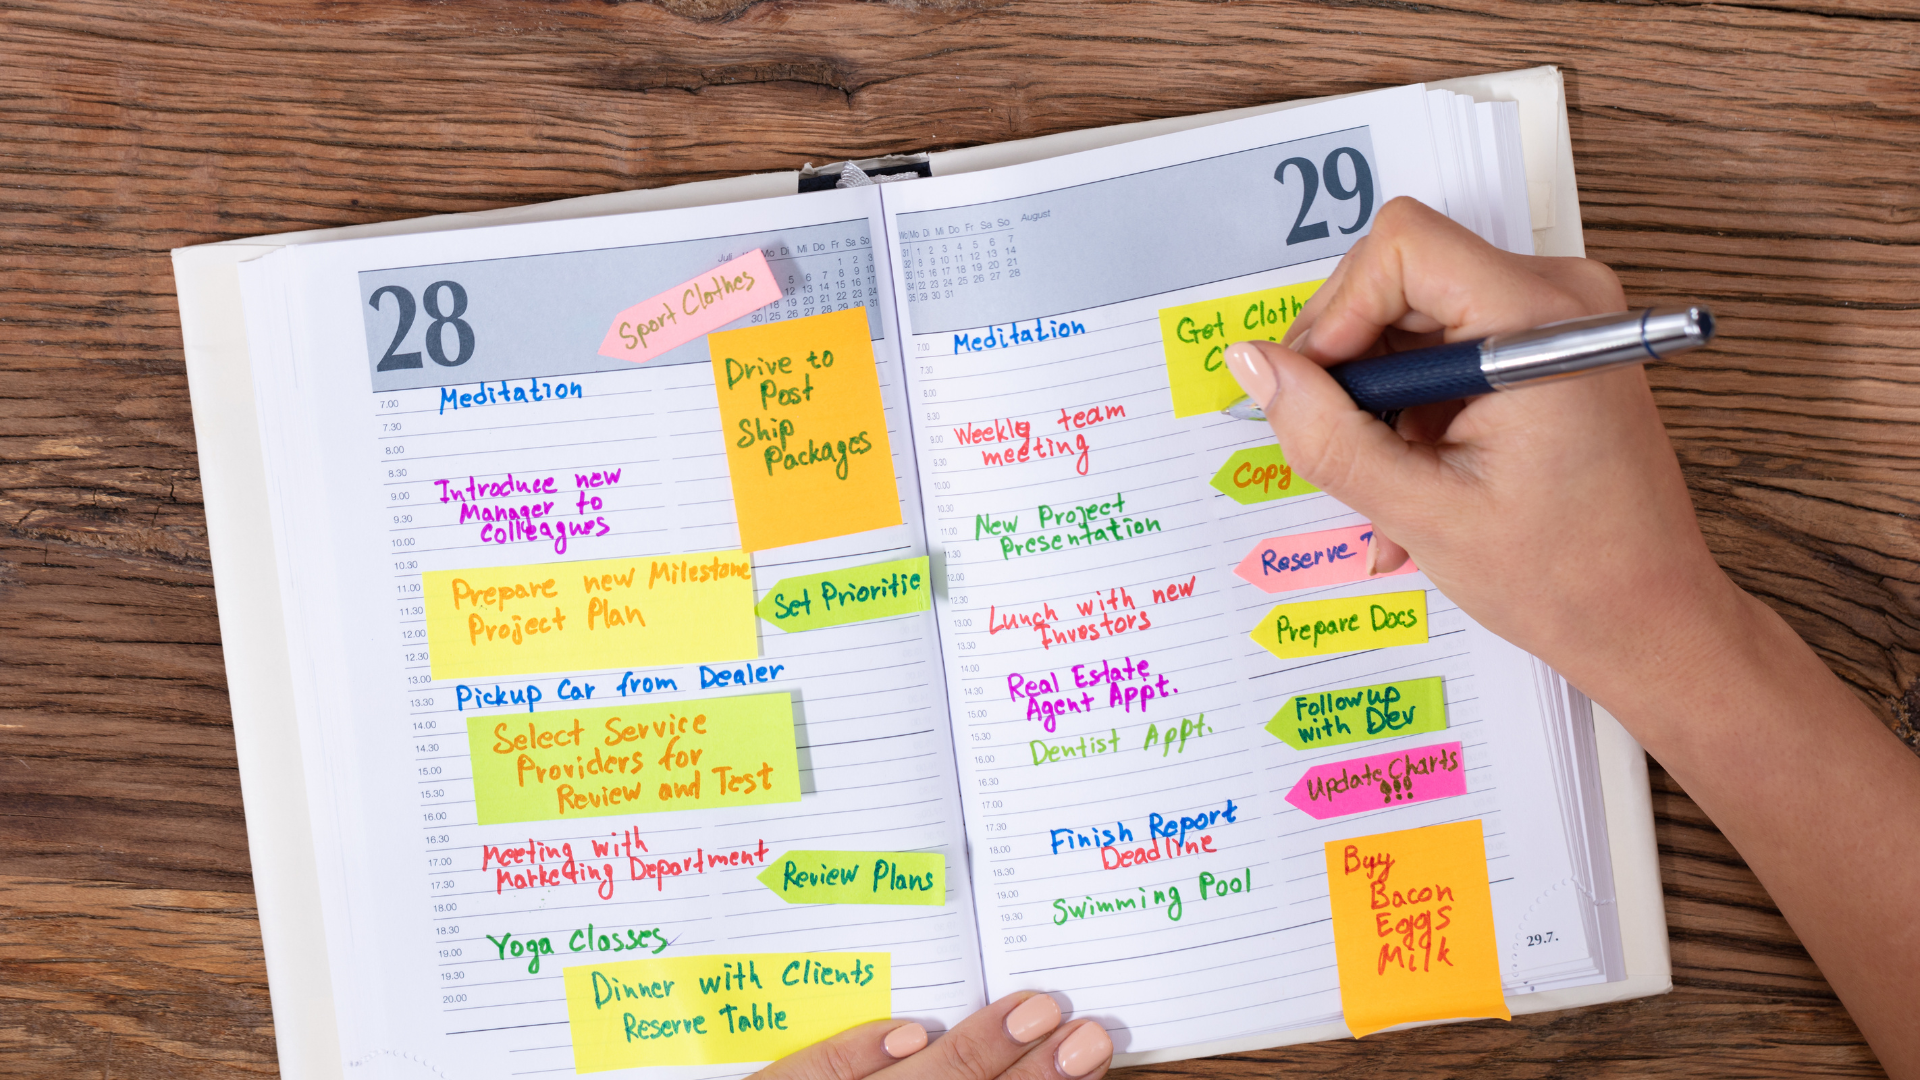 28
Juli
Mo Di Mi Do Fr Sa So
Sport Clothes
Drive to
Post
Ship
Packages
7.00
Meditation
7.30
8.00
8.30
9.00
Introduce new
9.30
Manager to
10.00
Colleagues
10.30
11.00
Prepare new Milestone
11.30
Project Plan
12.00
Set Prioritie
12.30
13.00
13.30
Pickup Car from Dealer
14.00
Select Service
14.30
Providers for
15.00
Review and Test
15.30
16.00
16.30
17.00
Meeting with
17.30
Marketing Department
Review Plans
18.00
18.30
19.00
Yoga Classes
19.30
20.00
Dinner with Clients
Reserve Table
29
August
Mo Di Mi Do Fr Sa So
1 2 3 4 5 6 7
8 9 10 11 12 13 14
15 16 17 18 19 20 21
22 23 24 25 26 27 28
29 30 31
7.00
Meditation
Get Cloth
7.30
8.00
8.30
9.00
Weekly team
9.30
meeting
Copy
10.00
10.30
New Project
11.00
Presentation
11.30
Reserve
12.00
12.30
Lunch with new
13.00
Investors
Prepare Docs
13.30
14.00
Real Estate
14.30
Agent Appt.
15.00
Follow up
with Dev
15.30
Dentist Appt.
16.00
16.30
Update Charts
!!!
17.00
17.30
Finish Report
18.00
Deadline
18.30
19.00
Swimming Pool
19.30
20.00
Buy
Bacon
Eggs
Milk
29.7.